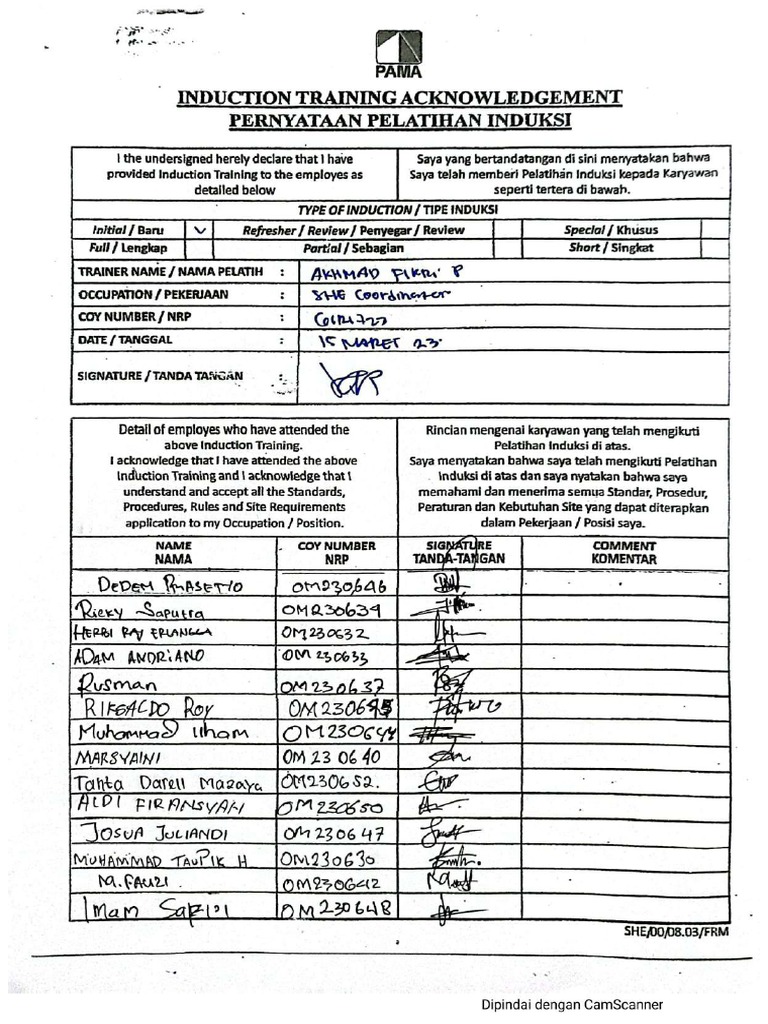 PAMA
INDUCTION TRAINING ACKNOWLEDGEMENT
PERNYATAAN PELATIHAN INDUKSI
I the undersigned herely declare that I have
provided Induction Training to the employes as
detailed below
Saya yang bertandatangan di sini menyatakan bahwa
Saya telah memberi Pelatihan Induksi kepada Karyawan
seperti tertera di bawah.
TYPE OF INDUCTION / TIPE INDUKSI
Initial / Baru ✓ Refresher / Review / Penyegar / Review Special / Khusus
Full / Lengkap Partial / Sebagian Short / Singkat
TRAINER NAME / NAMA PELATIH : AKHMAD FIKRI P
OCCUPATION / PEKERJAAN : SHE Coordinator
COY NUMBER / NRP :
DATE / TANGGAL : 15 MARET 23.
SIGNATURE / TANDA TANGAN :
Detail of employes who have attended the
above Induction Training.
I acknowledge that I have attended the above
Induction Training and I acknowledge that I
understand and accept all the Standards,
Procedures, Rules and Site Requirements
application to my Occupation / Position.
Rincian mengenai karyawan yang telah mengikuti
Pelatihan Induksi di atas.
Saya menyatakan bahwa saya telah mengikuti Pelatihan
Induksi di atas dan saya nyatakan bahwa saya
memahami dan menerima semua Standar, Prosedur,
Peraturan dan Kebutuhan Site yang dapat diterapkan
dalam Pekerjaan / Posisi saya.
NAME COY NUMBER SIGNATURE COMMENT
NAMA NRP TANDA-TANGAN KOMENTAR
DEDEM PRASETIO OM230646
Ricky Saputra OM230634
HERBI RAY ERLANGGA OM230632
ADAM ANDRIANO OM230633
Rusman OM230637
RIFGALDO Roy
Muhammad Ilham OM230644
MARSYAINI OM230640
Tanta Darell Mazaya OM230652.
ALDI FIRANSYAH OM230650
JOSUA JULIANDI OM230647
MUHAMMAD TAUPIK H OM230630
M.FAUZI OM230642
Imam OM230648
SHE/00/08.03/FRM
Dipindai dengan CamScanner